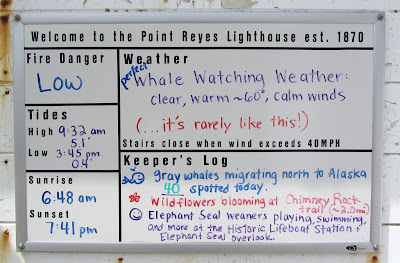 Welcome to the Point Reyes Lighthouse est. 1870
Fire Danger
Low
Tides
High 9:32 am
5.1'
Low 3:45 pm
0.4'
Sunrise
6:48 am
Sunset
7:41 pm
Weather
perfect
Whale Watching Weather:
clear, warm ~60°, calm winds
(...it's rarely like this!)
Stairs close when wind exceeds 40MPH
Keeper's Log
gray whales migrating north to Alaska
40 spotted today.
Wildflowers blooming at Chimney Rock
trail (~2.0mi)
Elephant Seal weaners playing, swimming,
and more at the Historic Lifeboat Station &
Elephant Seal overlook.